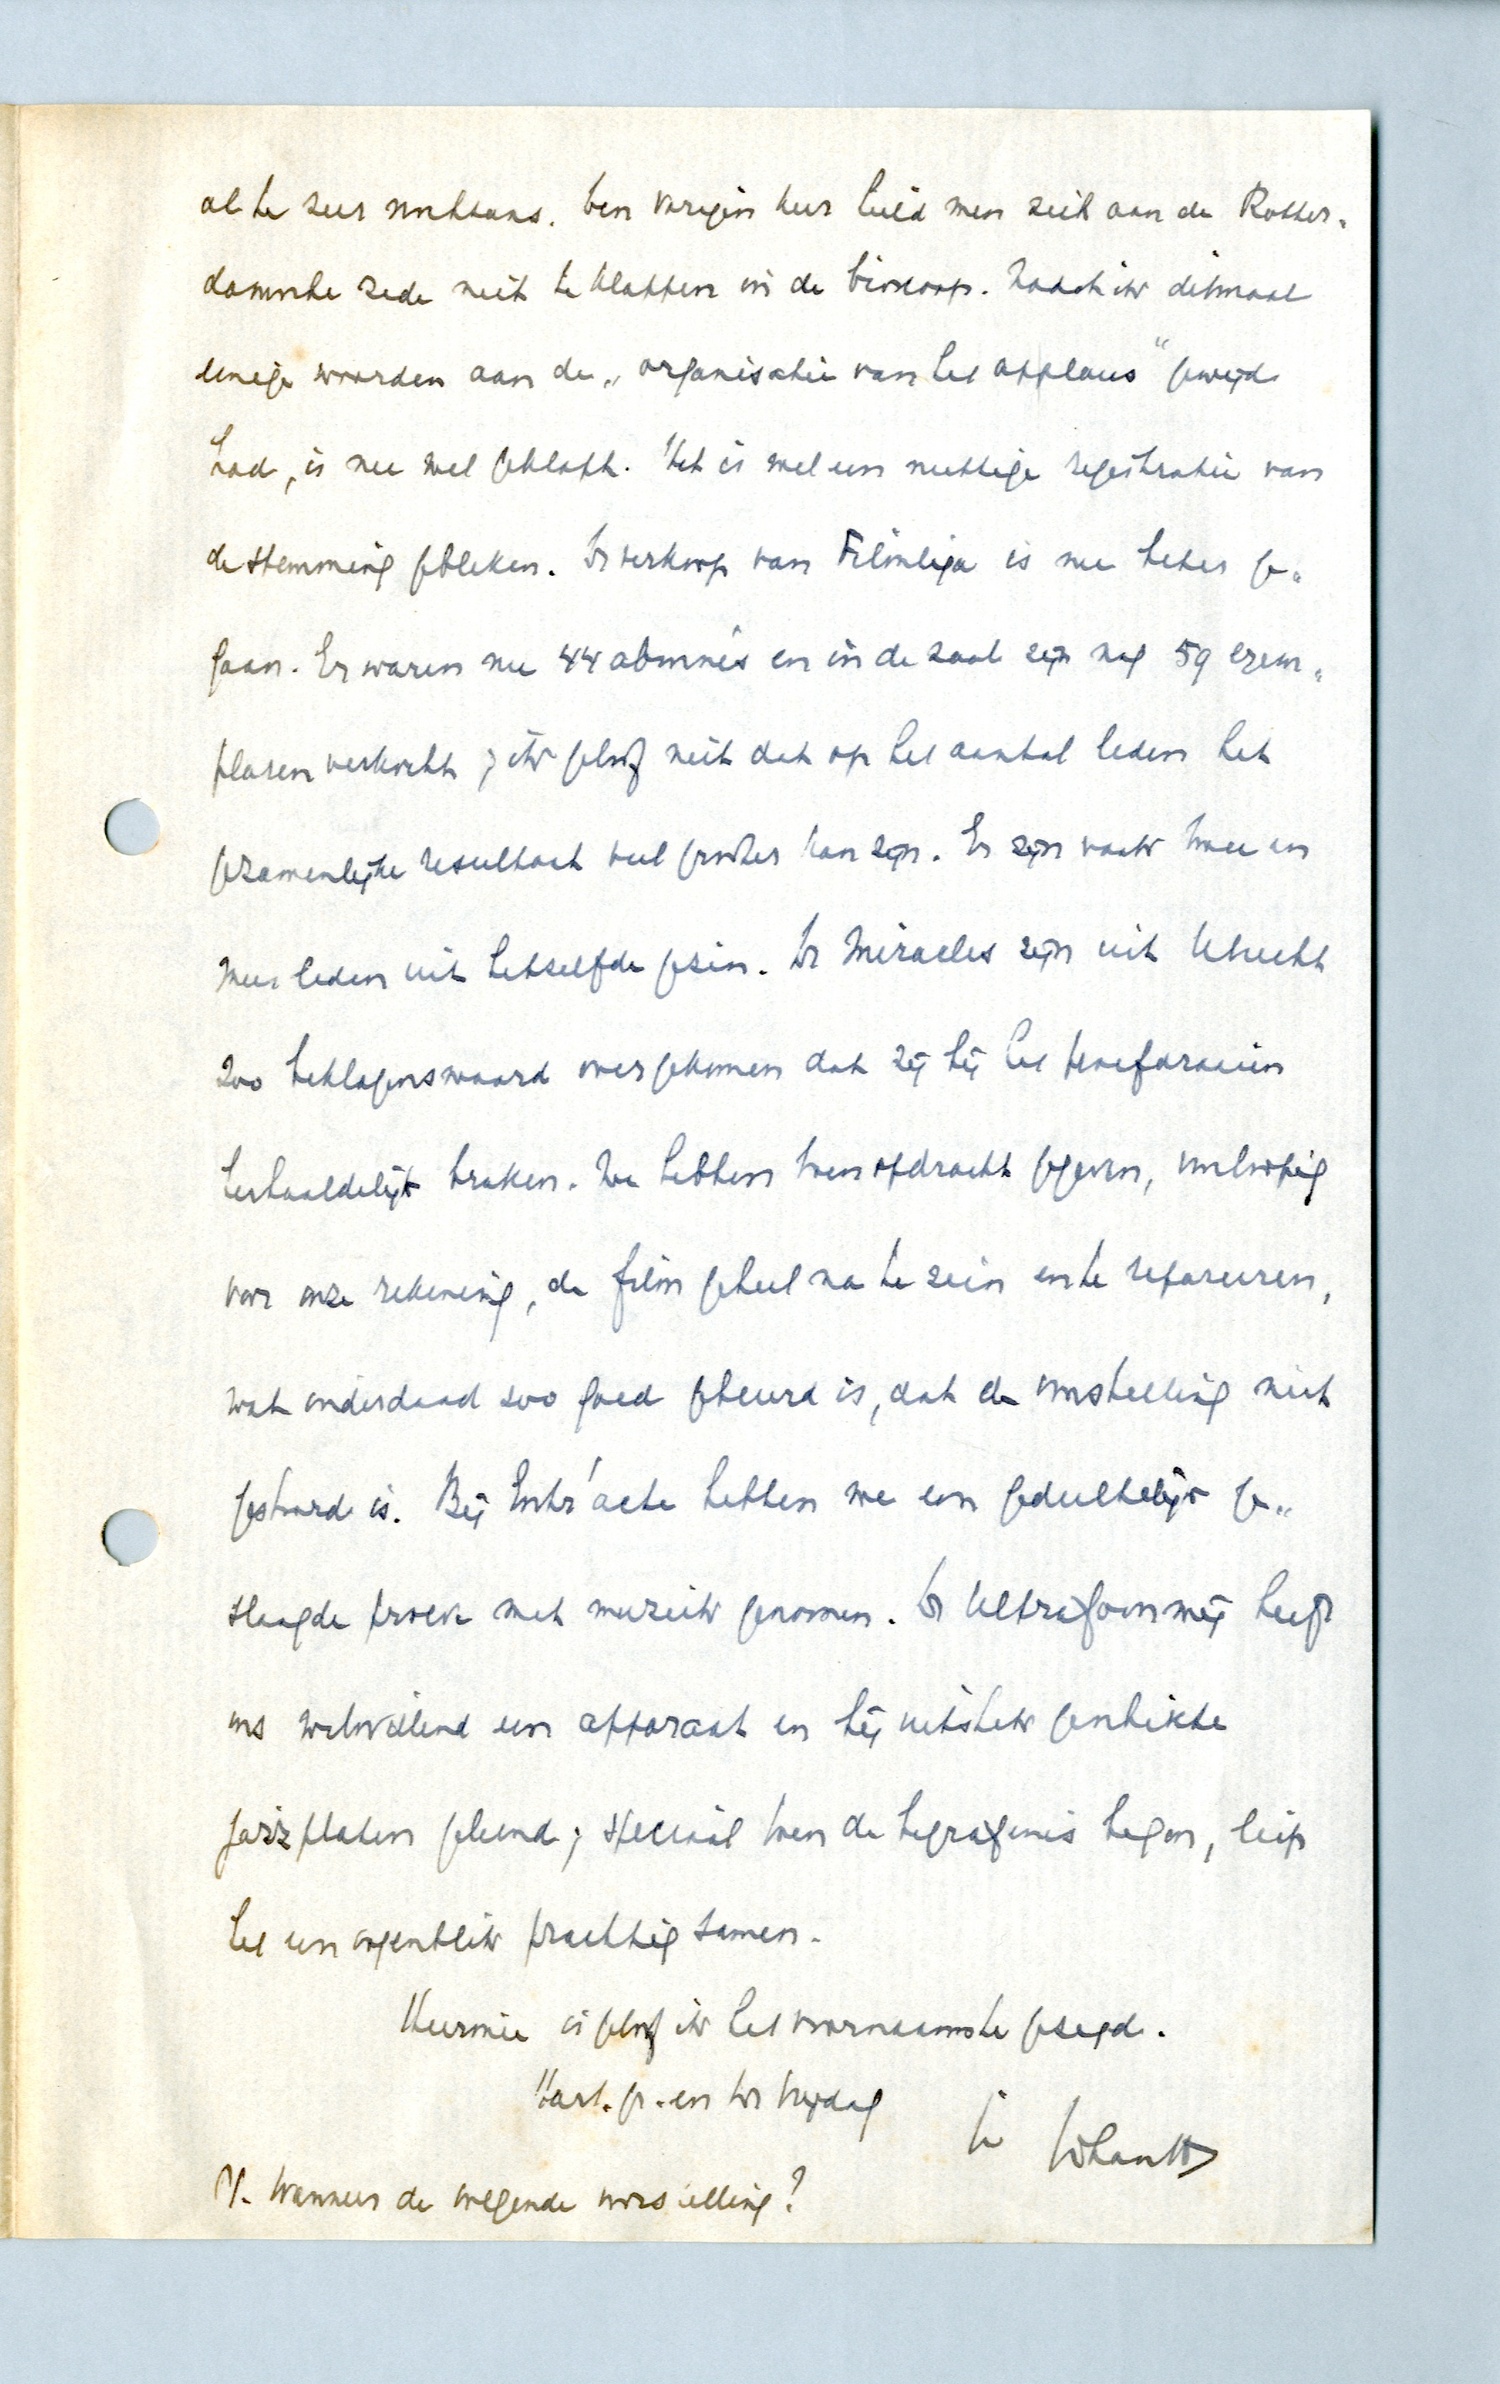 al te zeer nochtans. Den vorigen keer hield men zich aan de Rotter-
damsche zede niet te klappen in de bioscoop. Nadat ik ditmaal
eenige woorden aan de „organisatie van het applaus" gewijd
had, is nu wel geklapt. Het is wel een nuttige registratie van
de stemming gebleken. De verkoop van Filmliga is nu beter ge-
gaan. Er waren nu 44 abonnés en in de zaal zijn nog 59 exem-
plaren verkocht; ik geloof niet dat op het aantal leden het
gezamenlijke resultaat veel grooter kan zijn. Er zijn vaak twee en
meer leden uit hetzelfde gezin. De Miracles zijn uit Utrecht
zoo beklagenswaard overgekomen dat zij bij het proefdraaien
herhaaldelijk braken. We hebben toen opdracht gegeven, voorloopig
voor onze rekening, de film geheel na te zien en te repareeren,
wat inderdaad zoo goed gebeurd is, dat de voorstelling niet
gestoord is. Bij Entr'acte hebben we een gedeeltelijk ge-
slaagde proeve met muziek genomen. De Ultrafoon mij heeft
ons welwillend een apparaat en bij uitstek geschikte
jazzplaten geleend; speciaal toen de begrafenis begon, liep
het een oogenblik prachtig samen.
Hiermee is geloof ik het voornaamste gezegd.
Hart. gr. en tot vrijdag
J. Wanneer de volgende voorstelling?